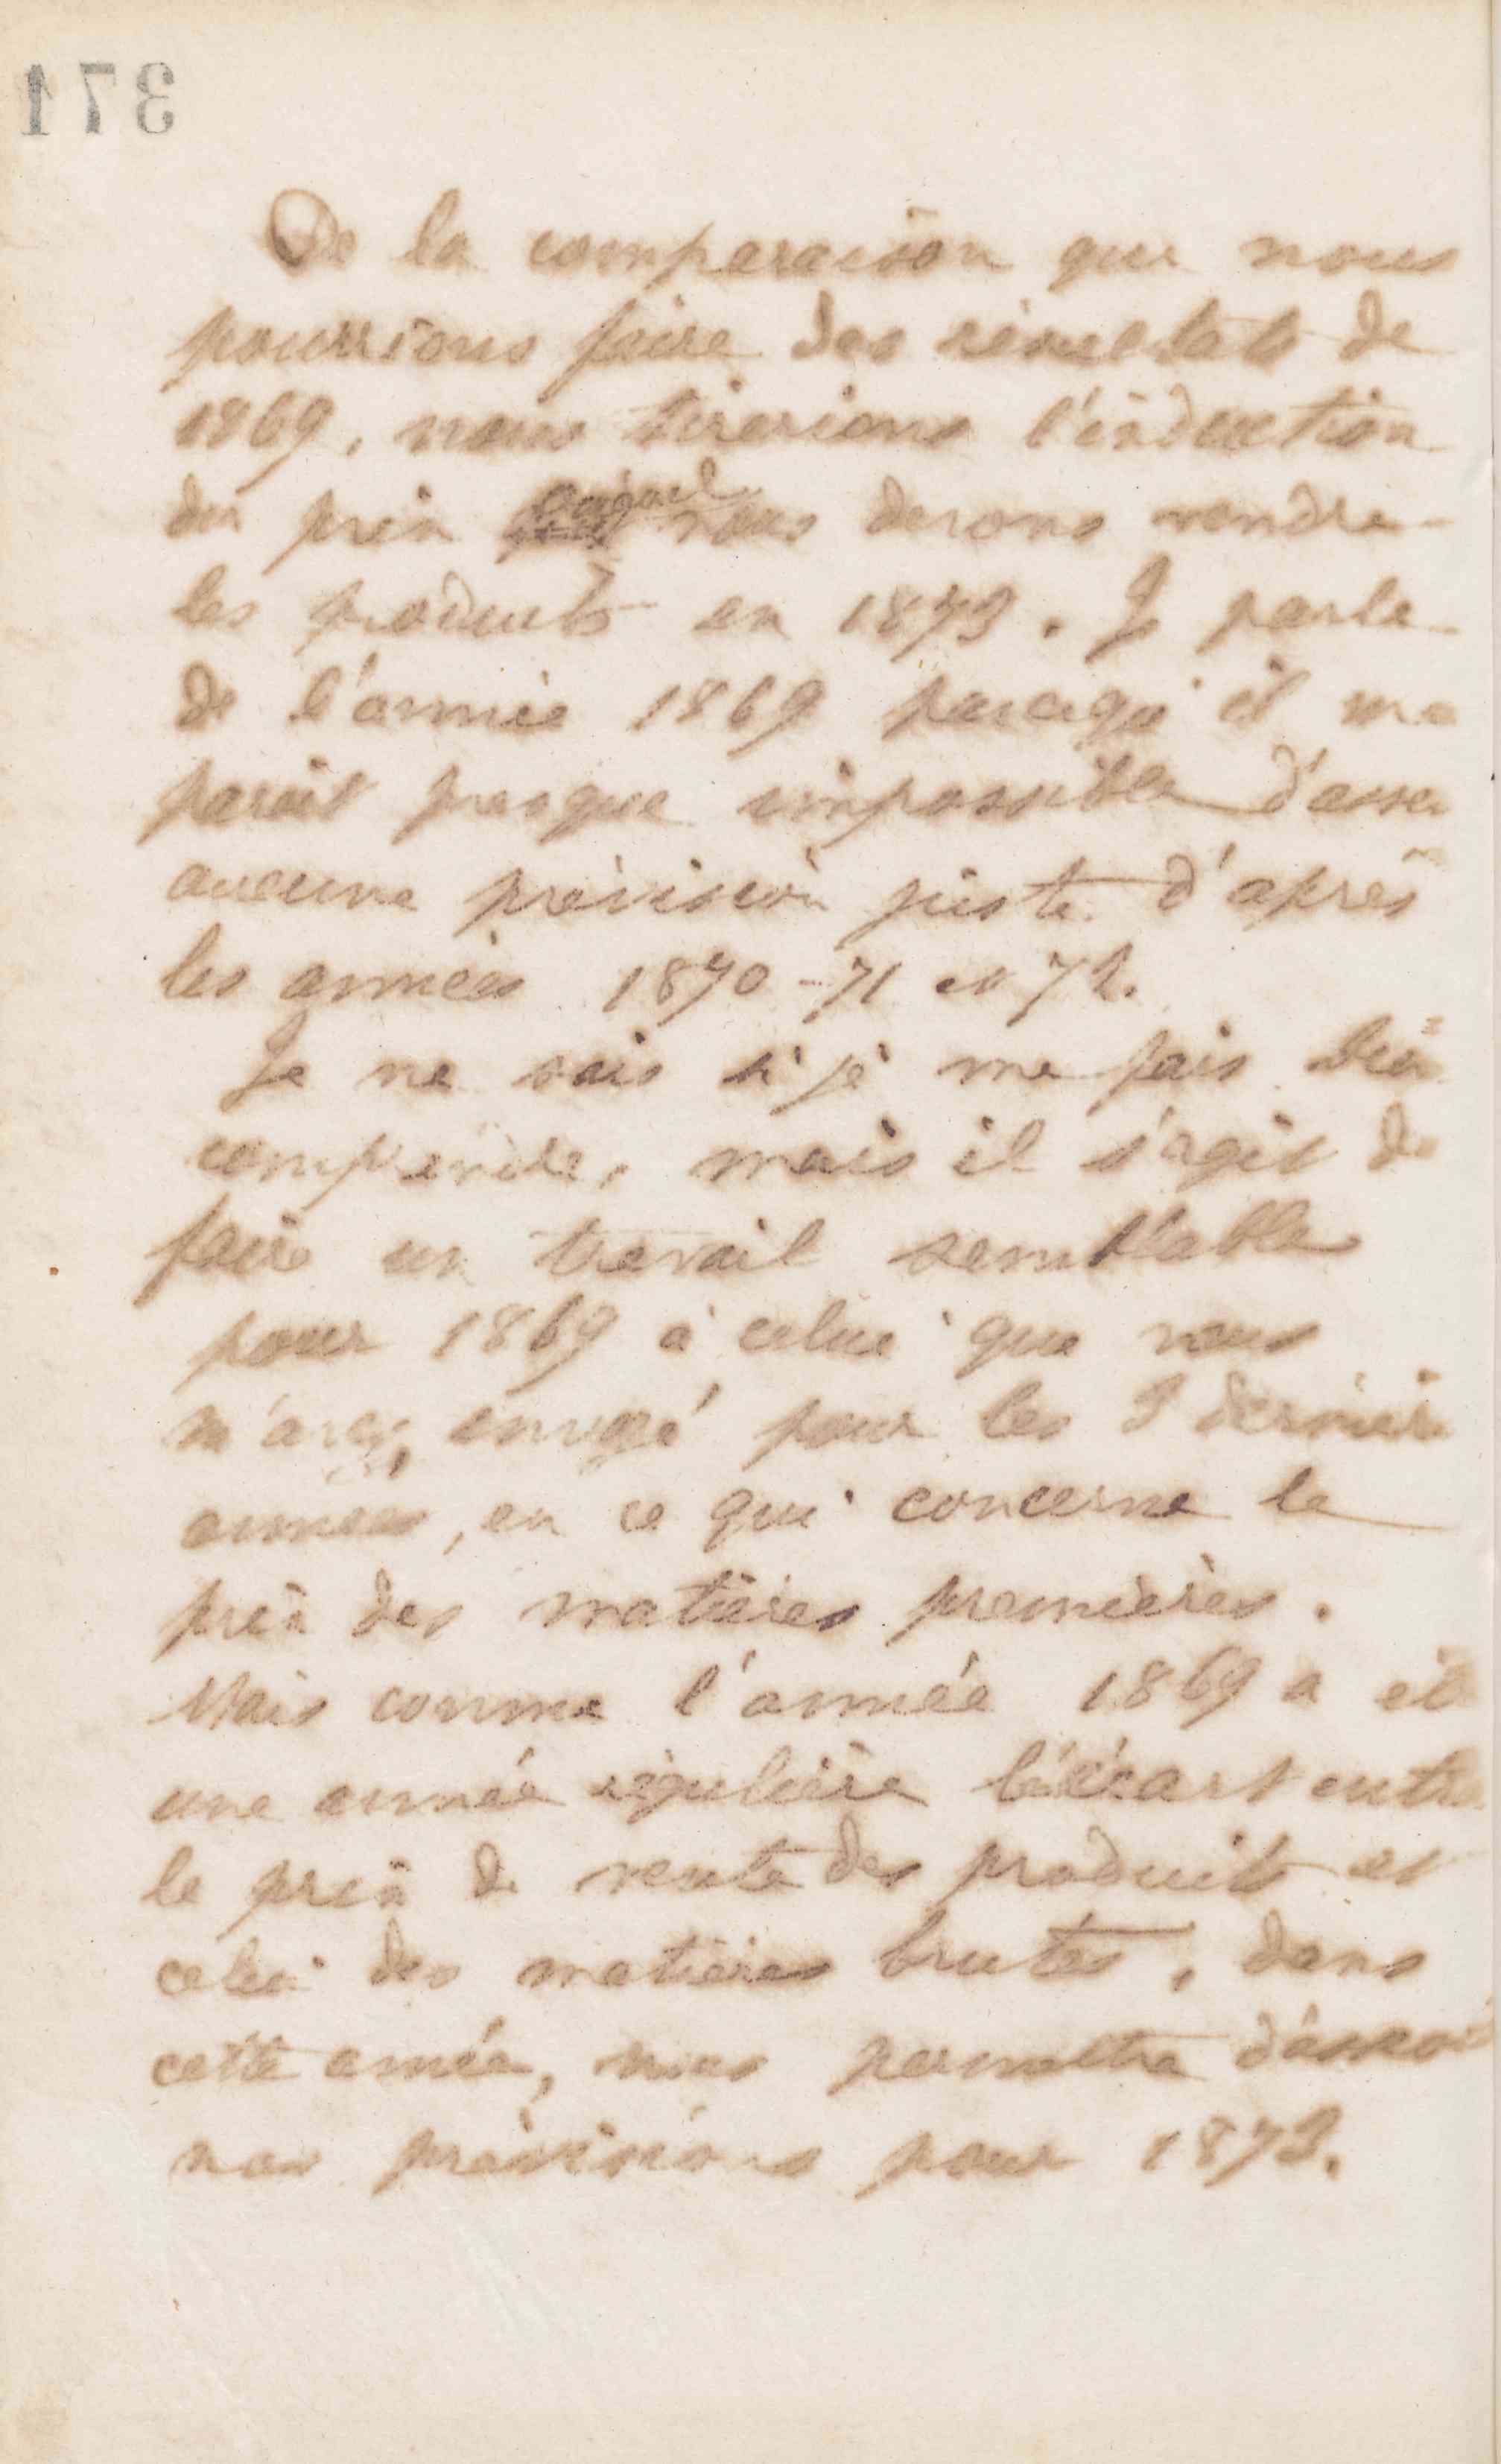 371
De la comparaison que nous
pourrions faire des résultats de
1869, nous tirerions l'induction
du prix auquel nous devons vendre
les produits en 1873. Je parle
de l'année 1869 parcequ'il me
parait presque impossible d'asseoir
aucune prévision juste d'après
les années 1870-71 et 72.
Je ne sais si je me fais bien
comprendre, mais il s'agit de
faire un travail semblable
pour 1869 à celui que vous
m'avez envoyé pour les 3 dernières
années, en ce qui concerne le
prix des matières premières.
Mais comme l'année 1869 a été
une année régulière l'écart entre
le prix de vente des produits et
celui des matières brutes, dans
cette année, nous permettra d'asseoir
nos prévisions pour 1873.